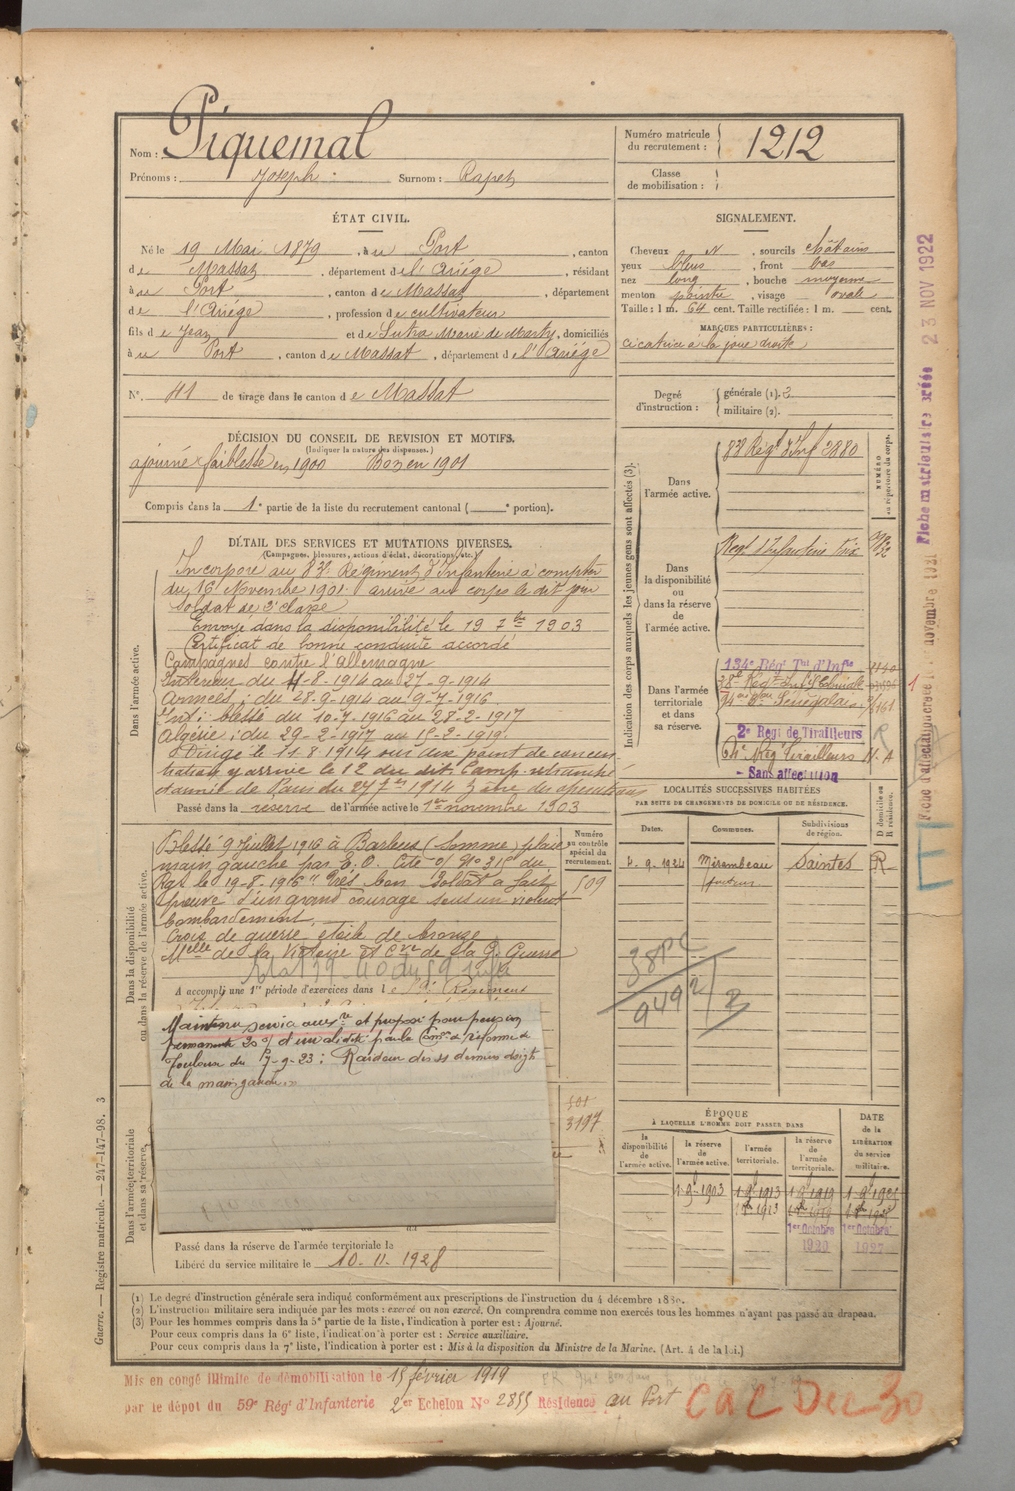 Nom : Piquemal
Prénoms : Joseph Surnom : Rapet
Numéro matricule du recrutement : 1212
Classe de mobilisation :
ÉTAT CIVIL.
Né le 19 Mai 1879, à Port, canton
de Massat, département de l'Ariége, résidant
à Port, canton de Massat, département
de l'Ariége, profession de cultivateur
fils de Jean et de Sutra Marie de Marty, domiciliés
à Port, canton de Massat, département de l'Ariége
N° 41 de tirage dans le canton de Massat
SIGNALEMENT.
Cheveux N, sourcils châtains
yeux bleus, front bas
nez long, bouche moyenne
menton pointu, visage ovale
Taille : 1 m. 64 cent. Taille rectifiée : 1 m. cent.
MARQUES PARTICULIÈRES :
cicatrice à la joue droite
Degré d'instruction : générale (1). 3
militaire (2).
DÉCISION DU CONSEIL DE REVISION ET MOTIFS.
(Indiquer la nature des dispenses.)
ajourné faiblesse en 1900 Bon en 1901
Compris dans la 1e partie de la liste du recrutement cantonal ( e portion).
DÉTAIL DES SERVICES ET MUTATIONS DIVERSES.
(Campagnes, blessures, actions d'éclat, décorations, etc.)
Dans l'armée active.
Incorporé au 83e Régiment d'Infanterie à compter
du 16 Novembre 1901 arrivé au corps le dit jour
Soldat de 2e classe
Envoyé dans la disponibilité le 19 7bre 1903
Certificat de bonne conduite accordé
Campagnes contre l'Allemagne
Intérieur du 11-8-1914 au 27-9-1914
Armées : du 28-9-1914 au 9-7-1916
Intr : blessé du 10-7-1916 au 28-2-1917
Algérie : du 29-2-1917 au 15-2-1919.
Dirigé le 11 8 1914 sur aux point de concen
tration y arrivé le 12 du dit. Camp retranché
Passé dans la réserve de l'armée active le 1er novembre 1903
Dans la disponibilité ou dans la réserve de l'armée active.
Blessé 9 Juillet 1916 à Barleux (Somme) plaie
main gauche par E. O. Cité O/ No 315 du
Rgt le 19-8-1916 "Très bon Soldat a fait
preuve d'un grand courage sous un violent
bombardement.
Croix de guerre étoile de bronze
Melle de la Victoire et Cve de la G. Guerre
A accompli une 1re période d'exercices dans le Régiment
Numéro au contrôle spécial du recrutement.
509
Maintenu service auxre et proposé pour pension
permanente 20 % d'invalidité par la Comon de réforme de
Toulouse du 7-9-23 : Raideur des derniers doigts
de la main gauche.
Dans l'armée territoriale et dans sa réserve.
501
3197
Passé dans la réserve de l'armée territoriale le
Libéré du service militaire le 10.11.1928
Indication des corps auxquels les jeunes gens sont affectés (3).
NUMÉRO au répertoire du corps.
Dans l'armée active.
83e Régt d'Inf 2880
Dans la disponibilité ou dans la réserve de l'armée active.
Régt d'Infanterie Foix
Dans l'armée territoriale et dans sa réserve.
134e Régt Tal d'Infie 2140
38e Régt Inf Coloniale
94e Bon Sénégalais
2e Régt de Tirailleurs R
64e Rég Tirailleurs N. A
- Sans affectation
LOCALITÉS SUCCESSIVES HABITÉES
PAR SUITE DE CHANGEMENTS DE DOMICILE OU DE RÉSIDENCE.
Dates. Communes. Subdivisions de région. D domicile ou R résidence.
9. 1924 Mirambeau Saintes R
facteur
38PC
9492/2
ÉPOQUE
À LAQUELLE L'HOMME DOIT PASSER DANS
la disponibilité de l'armée active. la réserve de l'armée active. l'armée territoriale. la réserve de l'armée territoriale.
DATE de la LIBÉRATION du service militaire.
1-9-1903 1-9-1913 1-9-1919 1-9-1925
1er Octobre 1er Octobre
1920 1927
(1) Le degré d'instruction générale sera indiqué conformément aux prescriptions de l'instruction du 4 décembre 1889.
(2) L'instruction militaire sera indiquée par les mots : exercé ou non exercé. On comprendra comme non exercés tous les hommes n'ayant pas passé au drapeau.
(3) Pour les hommes compris dans la 5e partie de la liste, l'indication à porter est : Ajourné.
Pour ceux compris dans la 6e liste, l'indication à porter est : Service auxiliaire.
Pour ceux compris dans la 7e liste, l'indication à porter est : Mis à la disposition du Ministre de la Marine. (Art. 4 de la loi.)
Mis en congé illimité de démobilisation le 15 février 1919
par le dépot du 59e Régt d'Infanterie 2er Echelon No 2855 Résidence au Port
CaC Dec 30
Guerre. — Registre matricule. — 247-147-98. 3
Fiche matriculaire créée 23 NOV 1922